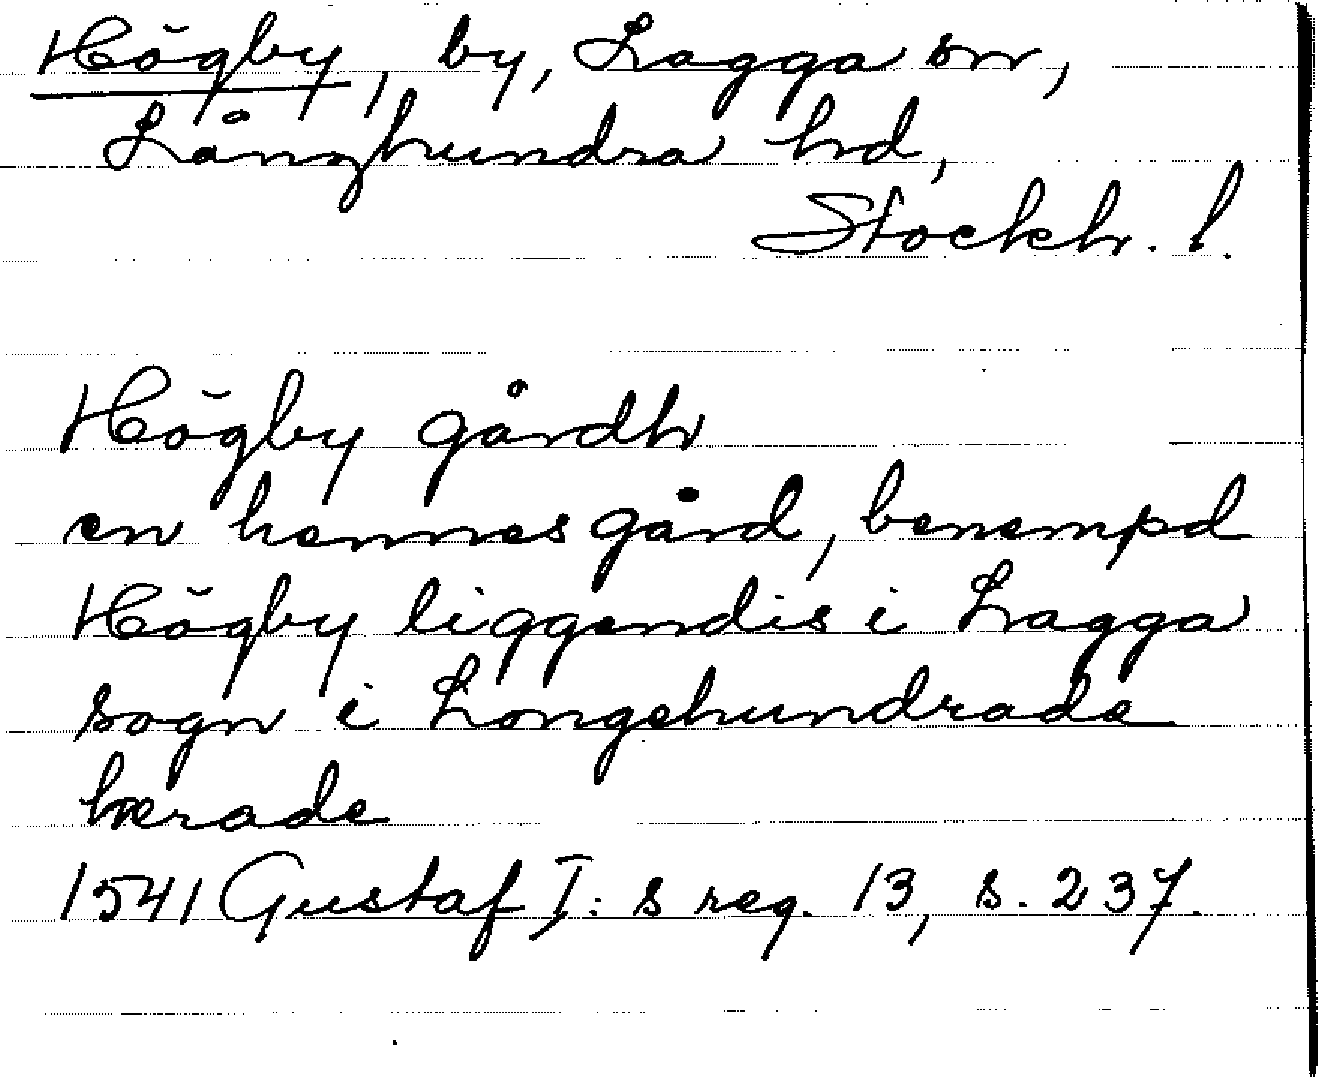 Högby, by, Lagga sn,
Långhundra hd,
Stockh. l.
Högby gårdh
en hennes gård, benempd
Högby liggendis i Lagga
sogn i Longehundrade
hærade
1541 Gustaf I:s reg. 13, s. 237.